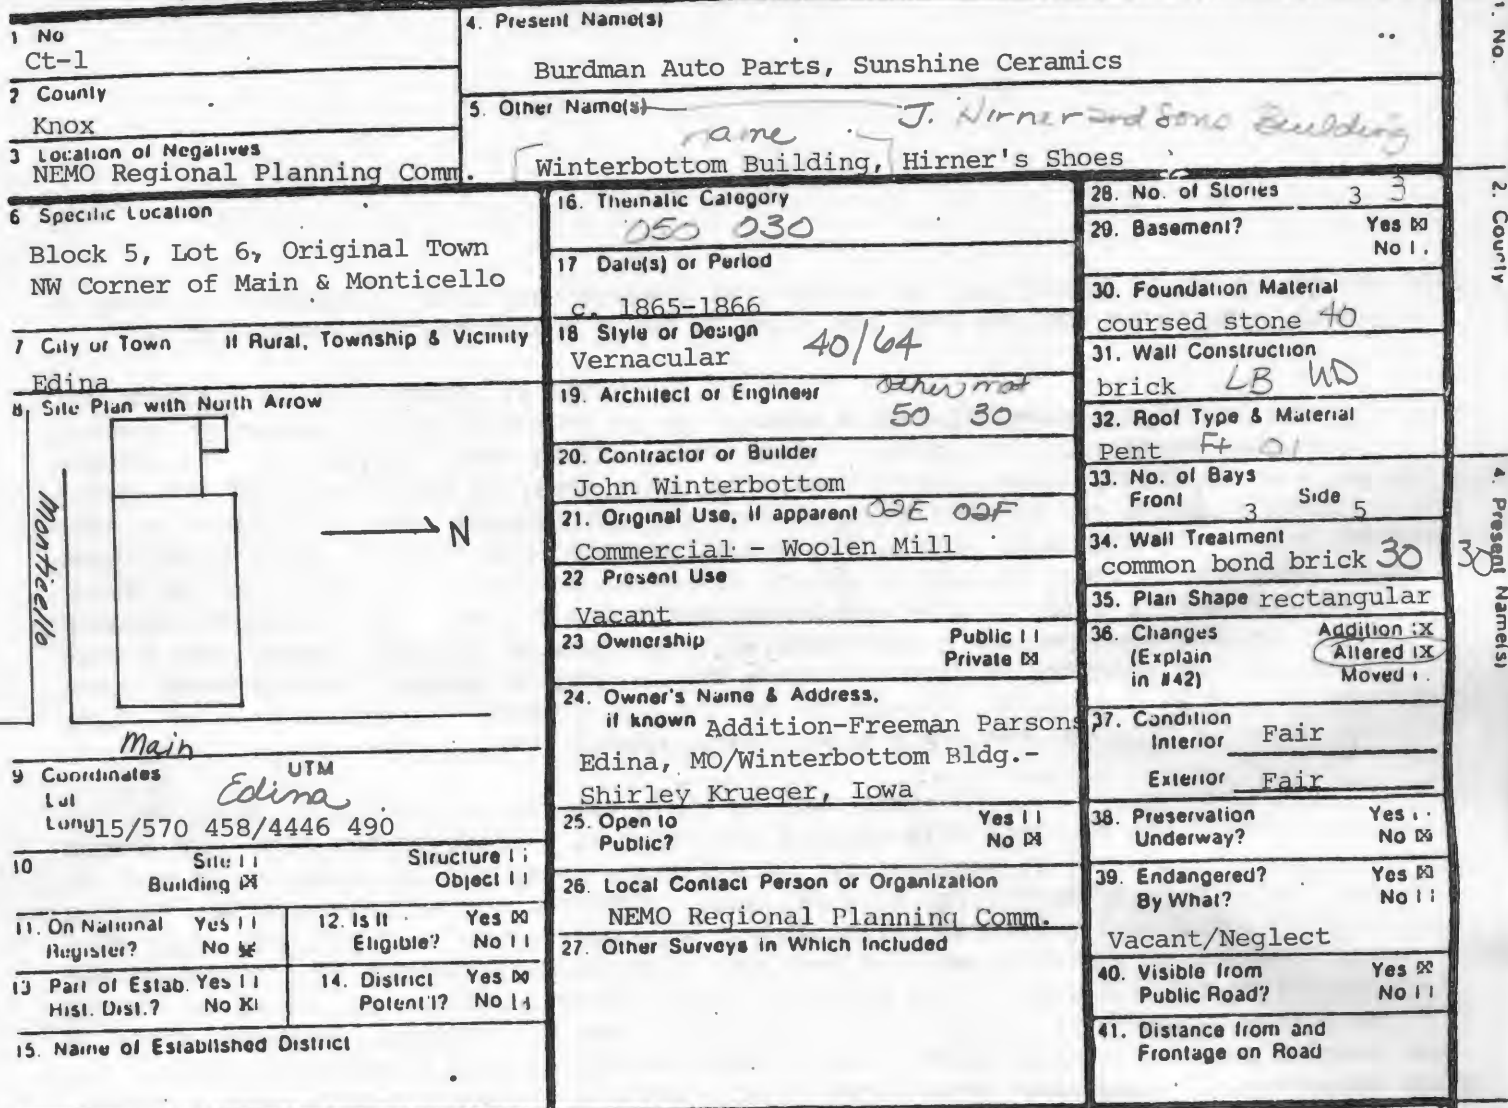 1 No
Ct-1
2 County
Knox
3 Location of Negatives
NEMO Regional Planning Comm.
4. Present Name(s)
Burdman Auto Parts, Sunshine Ceramics
5. Other Name(s)
name J. Hirner and Sons Building
Winterbottom Building, Hirner's Shoes
6 Specific Location
Block 5, Lot 6, Original Town
NW Corner of Main & Monticello
7 City or Town If Rural, Township & Vicinity
Edina
8. Site Plan with North Arrow
Monticello
N
Main
9 Coordinates UTM
Lat Edina
Long 15/570 458/4446 490
10 Site Structure
Building ☒ Object
11. On National Yes
Register? No ☒
12. Is It Yes ☒
Eligible? No
13 Part of Estab. Yes
Hist. Dist.? No ☒
14. District Yes ☒
Potent'l? No
15. Name of Established District
16. Thematic Category
050 030
17 Date(s) or Period
c. 1865-1866
18 Style or Design
Vernacular 40/64
19. Architect or Engineer other mat
50 30
20. Contractor or Builder
John Winterbottom
21. Original Use, if apparent 02E 02F
Commercial - Woolen Mill
22 Present Use
Vacant
23 Ownership Public
Private ☒
24. Owner's Name & Address,
if known Addition-Freeman Parsons
Edina, MO/Winterbottom Bldg.-
Shirley Krueger, Iowa
25. Open to Yes
Public? No ☒
26. Local Contact Person or Organization
NEMO Regional Planning Comm.
27. Other Surveys in Which Included
28. No. of Stories 3 3
29. Basement? Yes ☒
No
30. Foundation Material
coursed stone 40
31. Wall Construction
brick LB UD
32. Roof Type & Material
Pent Ft 01
33. No. of Bays
Front 3 Side 5
34. Wall Treatment
common bond brick 30
35. Plan Shape rectangular
36. Changes Addition X
(Explain Altered X
in #42) Moved
37. Condition
Interior Fair
Exterior Fair
38. Preservation Yes
Underway? No ☒
39. Endangered? Yes ☒
By What? No
Vacant/Neglect
40. Visible from Yes ☒
Public Road? No
41. Distance from and
Frontage on Road
1. No.
2. County
4. Present Name(s)
30